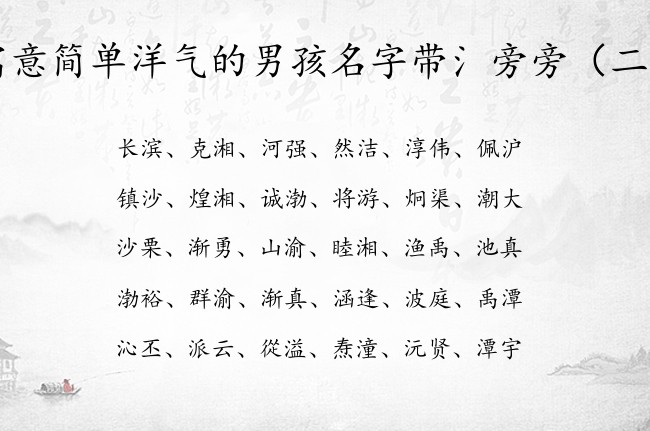 寓意简单洋气的男孩名字带氵旁旁（二
长滨、克湘、河强、然洁、淳伟、佩沪
镇沙、煌湘、诚渤、将游、炯渠、潮大
沙栗、渐勇、山渝、睦湘、渔禹、池真
渤裕、群渝、渐真、涵逢、波庭、禹潭
沁丕、派云、從溢、焘潼、沅贤、潭宇